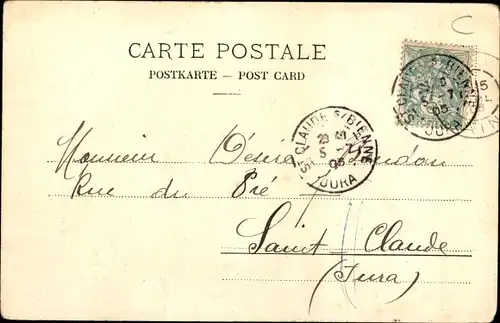 C
CARTE POSTALE
POSTKARTE — POST CARD
ST CLAUDE S/BIENNE
5 -7
05
JURA
ST CLAUDE S/BIENNE
5 -7
05
JURA
Monsieur Désiré
Rue du Pré
Saint Claude
(Jura)